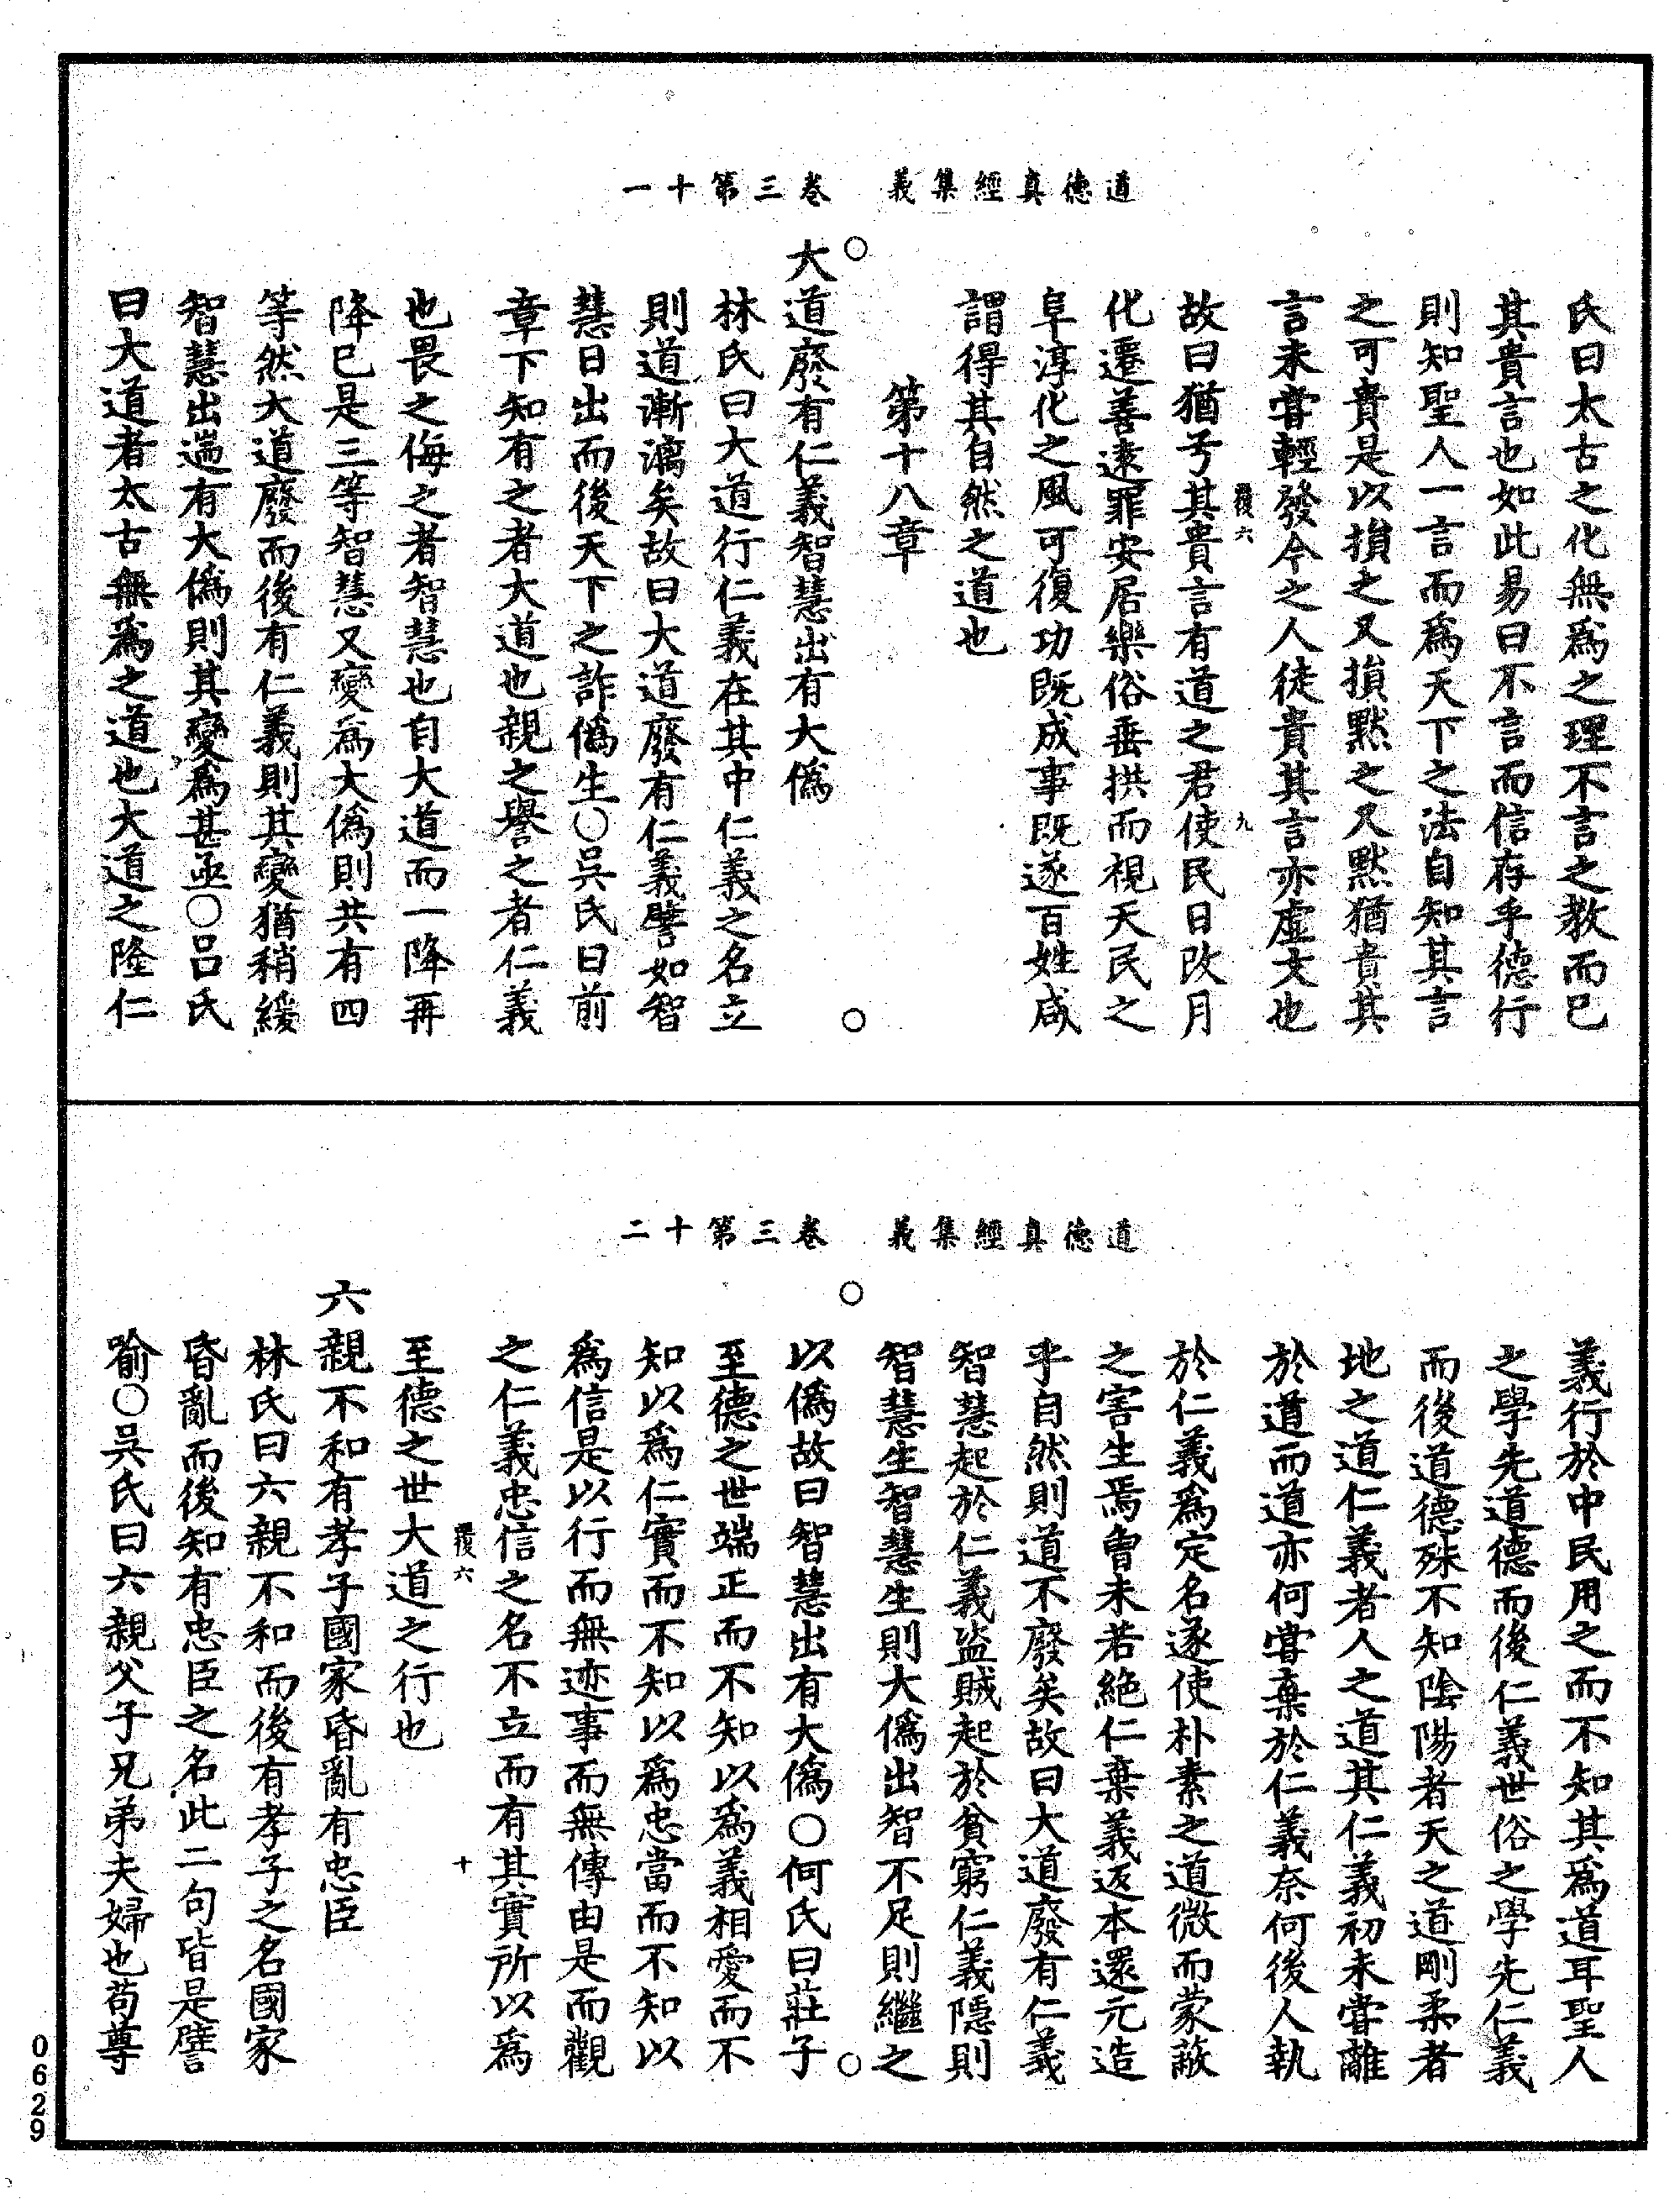 道德真經集義　卷三第十一
氏曰太古之化無爲之理不言之教而已
其貴言也如此易曰不言而信存乎德行
則知聖人一言而爲天下之法自知其言
之可貴是以損之又損默之又默猶貴其
言未嘗輕發今之人徒貴其言亦虛文也
覆六　九
故曰猶兮其貴言有道之君使民日改月
化遷善遠罪安居樂俗垂拱而視天民之
阜淳化之風可復功既成事既遂百姓咸
謂得其自然之道也
第十八章
大道廢有仁義智慧出有大僞
林氏曰大道行仁義在其中仁義之名立
則道漸漓矣故曰大道廢有仁義譬如智
慧日出而後天下之詐僞生○吳氏曰前
章下知有之者大道也親之譽之者仁義
也畏之侮之者智慧也自大道而一降再
降已是三等智慧又變爲大僞則共有四
等然大道廢而後有仁義則其變猶稍緩
智慧出遄有大僞則其變爲甚亟○呂氏
曰大道者太古無爲之道也大道之隆仁
道德真經集義　卷三第十二
義行於中民用之而不知其爲道耳聖人
之學先道德而後仁義世俗之學先仁義
而後道德殊不知陰陽者天之道剛柔者
地之道仁義者人之道其仁義初未嘗離
於道而道亦何嘗棄於仁義奈何後人執
於仁義爲定名遂使朴素之道微而蒙蔽
之害生焉曾未若絕仁棄義返本還元造
乎自然則道不廢矣故曰大道廢有仁義
智慧起於仁義盜賊起於貧窮仁義隱則
智慧生智慧生則大僞出智不足則繼之
以僞故曰智慧出有大僞○何氏曰莊子
至德之世端正而不知以爲義相愛而不
知以爲仁實而不知以爲忠當而不知以
爲信是以行而無迹事而無傳由是而觀
之仁義忠信之名不立而有其實所以爲
覆六　十
至德之世大道之行也
六親不和有孝子國家昏亂有忠臣
林氏曰六親不和而後有孝子之名國家
昏亂而後知有忠臣之名此二句皆是譬
喻○吳氏曰六親父子兄弟夫婦也苟尊
0629